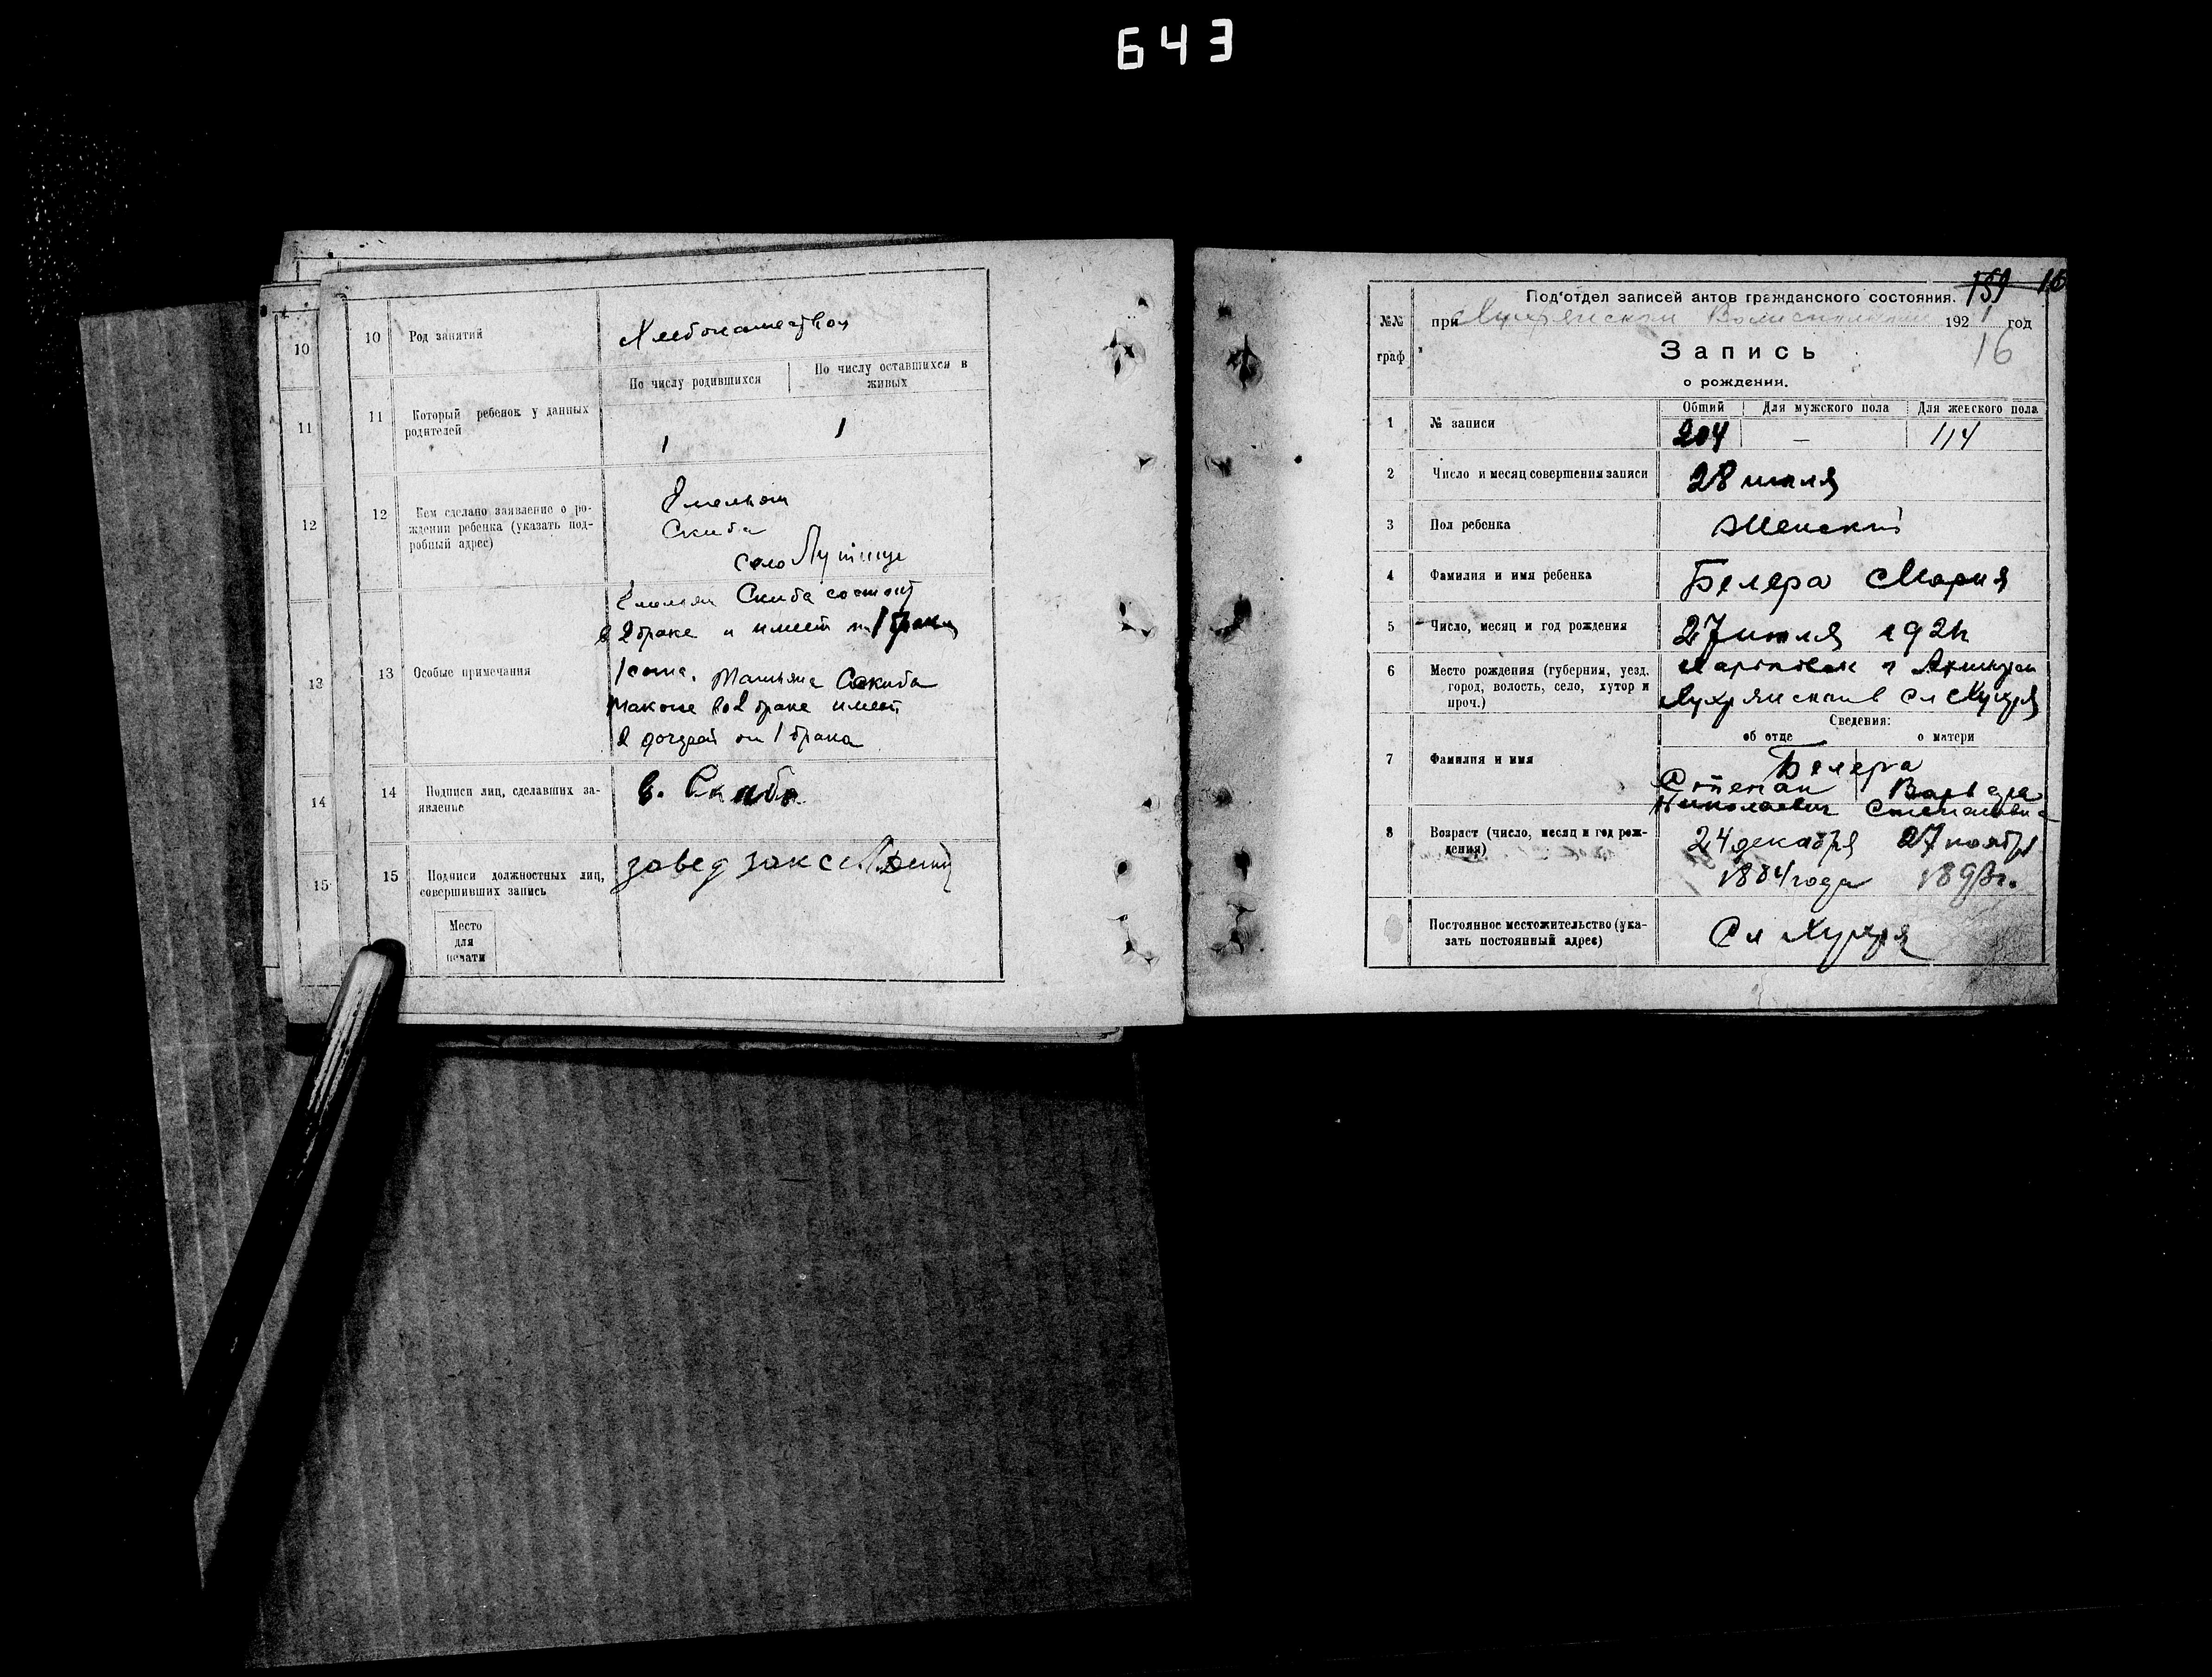 643
10
11
12
13
14
15
10 Род занятий
Хлебопашество
11 Который ребенок у данных родителей
По числу родившихся
По числу оставшихся в живых
1 1
12 Кем сделано заявление о ро-
ждении ребенка (указать под-
робный адрес)
Емельян
Скиба
село Лутище
13 Особые примечания
Емельян Скиба состоит
в 2 браке и имеет от 1 брака
1 сына. Татьяна Скиба
также во 2 браке имеет
2 дочерей от 1 брака
14 Подписи лиц, сделавших за-
явление
Е. Скиба
15 Подписи должностных лиц,
совершивших запись
завед загс
Место
для
печати
159 16
Под'отдел записей актов гражданского состояния.
№№ при Хухрянском Волисполкоме 1921 год
граф
Запись 16
о рождении.
Общий Для мужского пола Для женского пола
1 № записи 204 — 114
2 Число и месяц совершения записи 28 июля
3 Пол ребенка Женский
4 Фамилия и имя ребенка Белера Мария
5 Число, месяц и год рождения 27 июля 1921
6 Место рождения (губерния, уезд,
город, волость, село, хутор и
проч.)
Харьковск г
Хухрянской в Сл Хухря
Сведения:
об отце о матери
7 Фамилия и имя
Белера
Степан Варвара
Николаевич Степановна
8 Возраст (число, месяц и год рож-
дения)
24 декабря 27 ноября
1884 года 1893 г.
Постоянное местожительство (ука-
зать постоянный адрес)
Сл Хухря